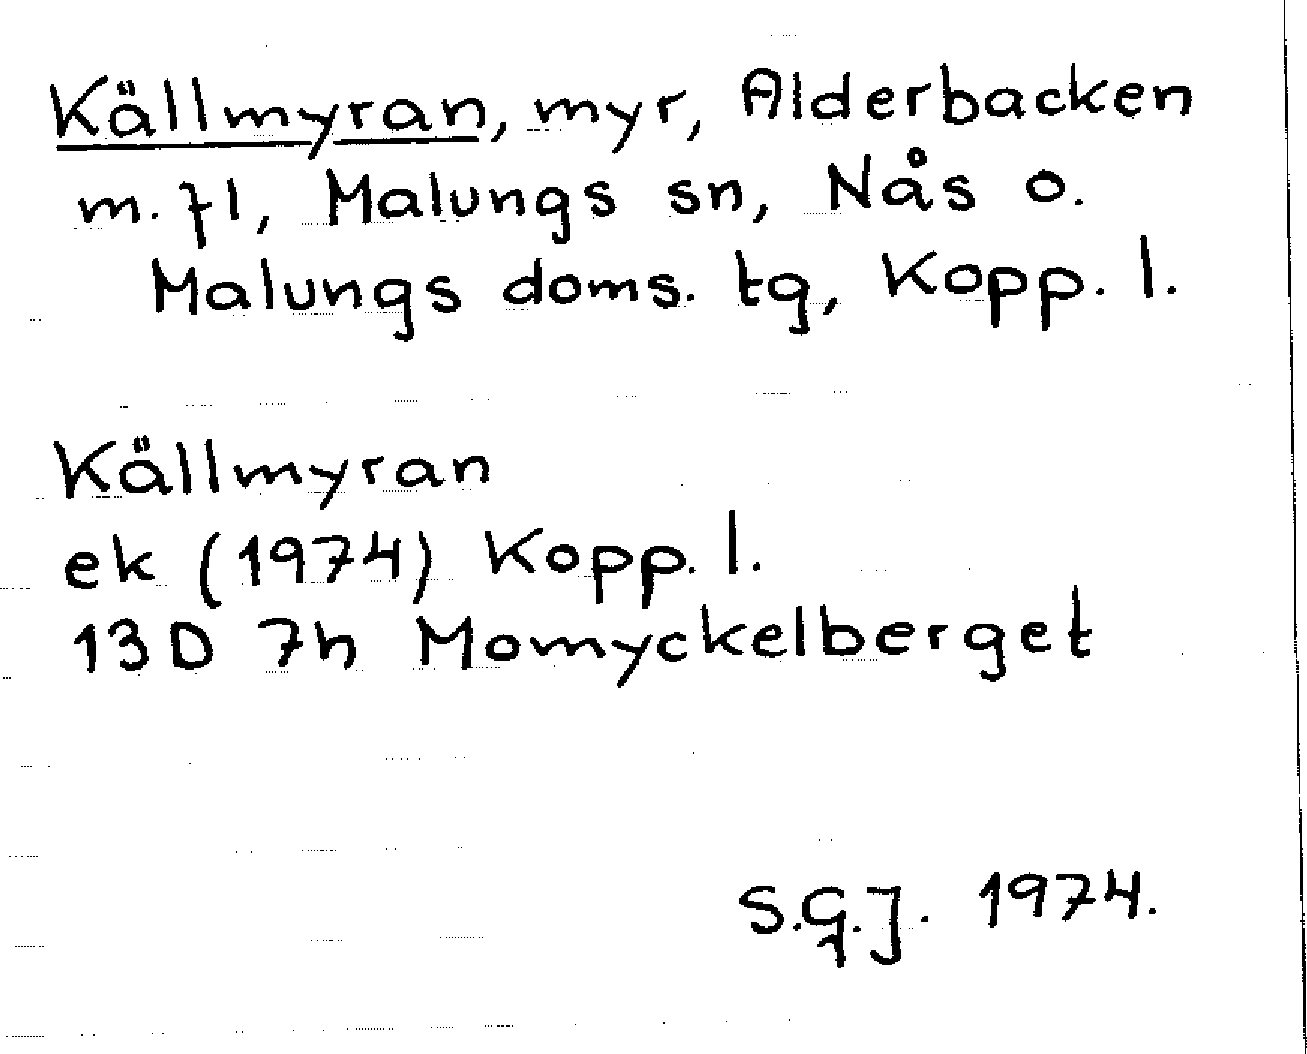 Källmyran, myr, Alderbacken
m. fl, Malungs sn, Nås o.
Malungs doms. tg, Kopp. l.
Källmyran
ek (1974) Kopp. l.
13D 7h Momyckelberget
S.G.J. 1974.